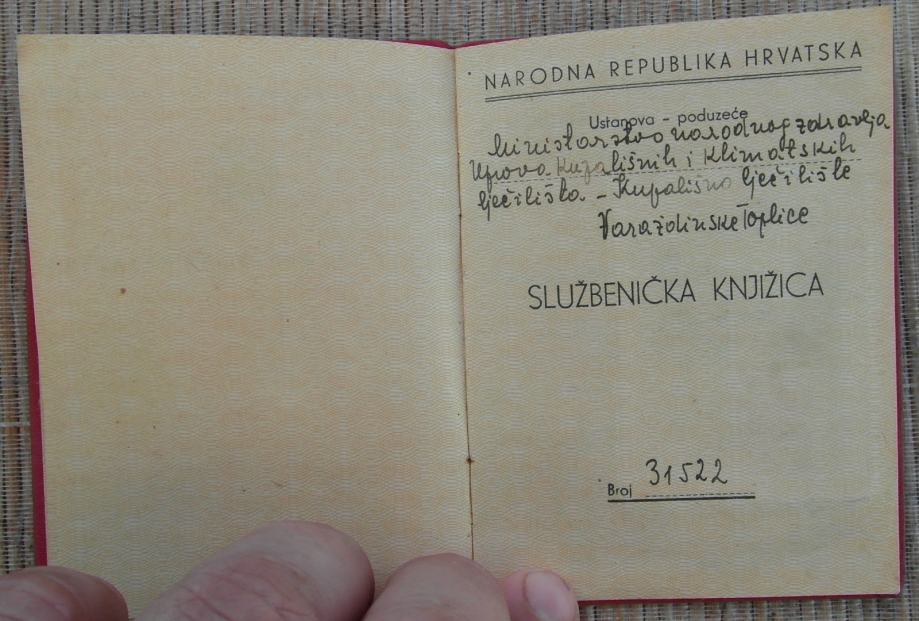 NARODNA REPUBLIKA HRVATSKA
Ustanova - poduzeće
Ministarstvo narodnog zdravlja
Uprava kupališnih i klimatskih
lječilišta - Kupališno lječilište
Varaždinske Toplice
SLUŽBENIČKA KNJIŽICA
Broj 31522